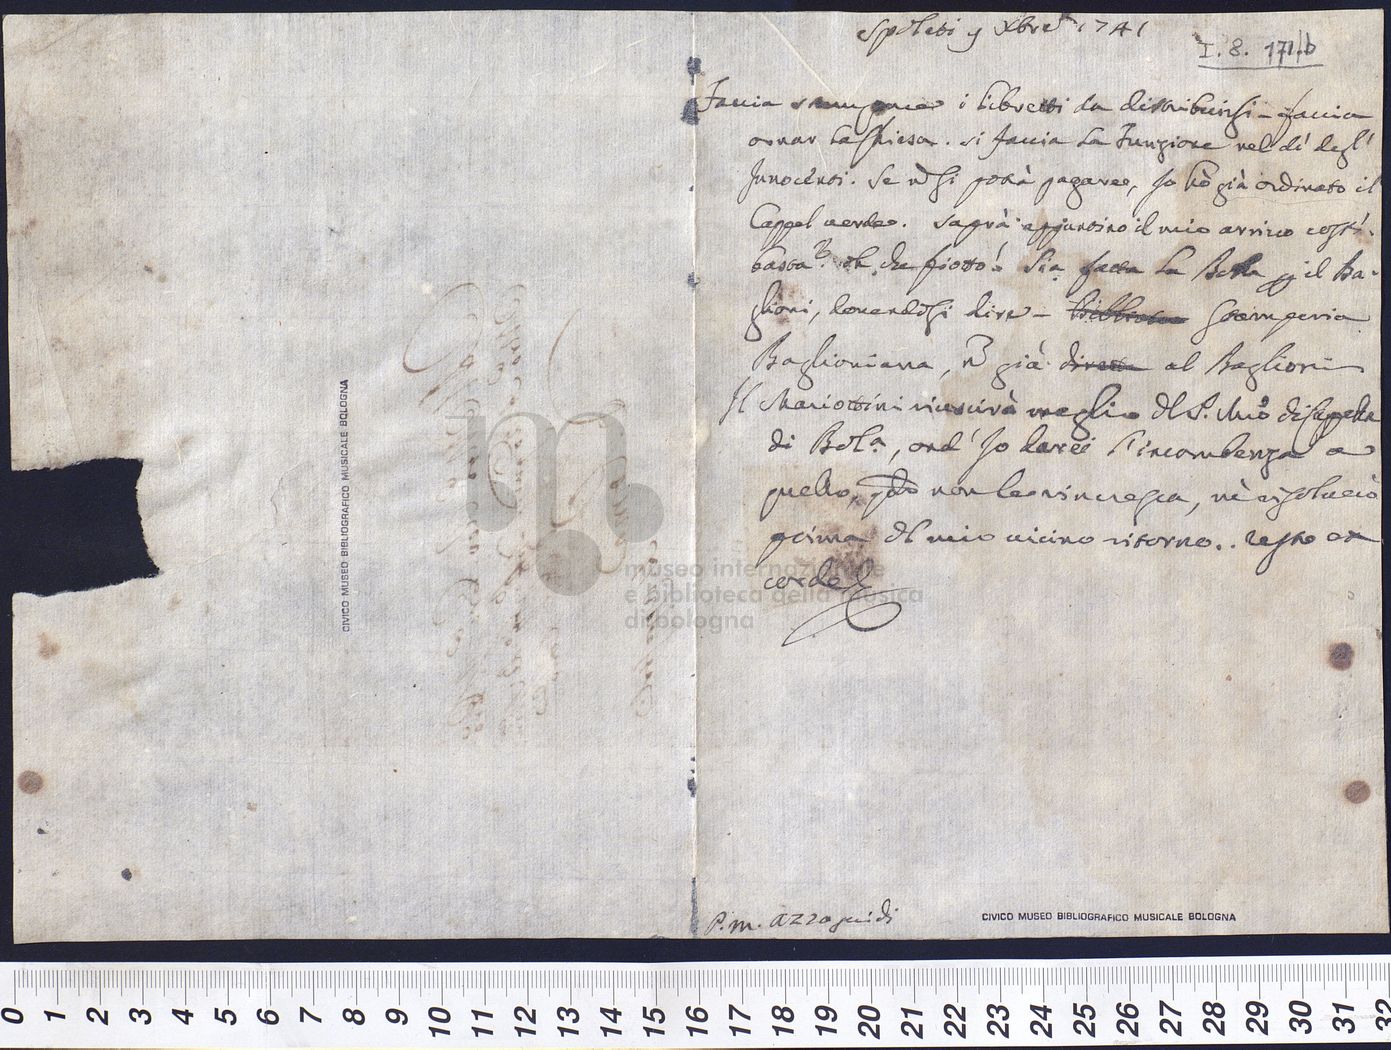 Spoleti 9 Xbre 1741
I. 8. 171/b
Faccia stampare i libretti da distribuirsi - faccia
ornar la Chiesa. si faccia la Funzione nel dì degl'
Innocenti. Se si potrà pagare, Io hò già ordinato il
Cappel verde. Saprà appuntino il mio arrivo costì.
basta oh che fiotto! Sia fatta la p il Ba-
glioni, dire - Stamperia
Baglioniana, ñ già al Baglioni
Il Mariottini riuscirà meglio del P. Mrõ di Cappella
di Bola, ond' Io darei l'incombenza a
quello, non le rincresca, nè risoluciò
prima del mio vicino ritorno.. resto ex
corde
P. m. Azzoguidi
CIVICO MUSEO BIBLIOGRAFICO MUSICALE BOLOGNA
CIVICO MUSEO BIBLIOGRAFICO MUSICALE BOLOGNA
museo internazionale
e biblioteca della musica
di bologna
0 1 2 3 4 5 6 7 8 9 10 11 12 13 14 15 16 17 18 19 20 21 22 23 24 25 26 27 28 29 30 31 32